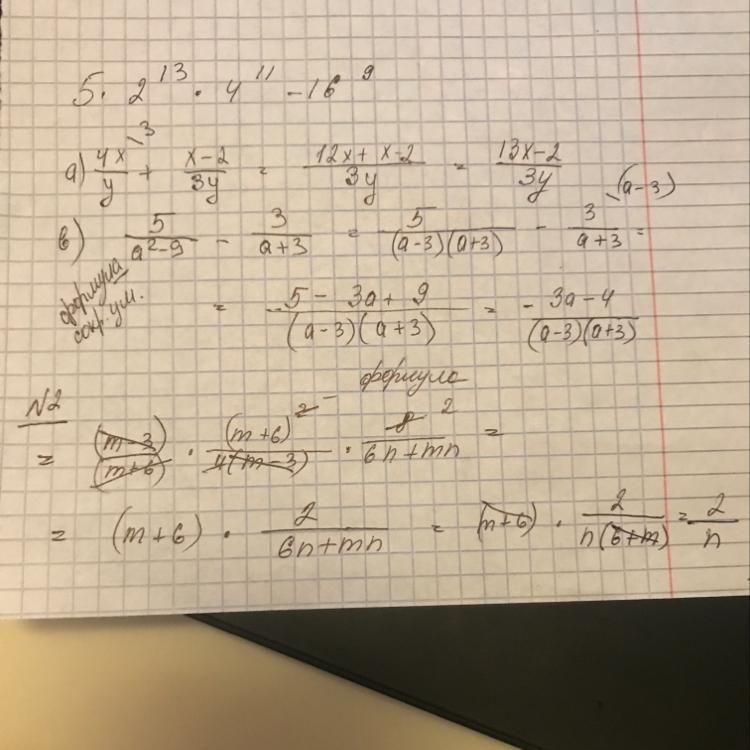 5 · 2^13 · 4^11 - 16^9
а) 4x/y \3 + x-2/3y = 12x+x-2/3y = 13x-2/3y
в) 5/a²-9 - 3/a+3 = 5/(a-3)(a+3) - 3/a+3 \(a-3) =
формула сокр. ум.
= 5 - 3a + 9/(a-3)(a+3) = - 3a-4/(a-3)(a+3)
формула
N2
= (m-3)/(m+6) · (m+6)²/4(m-3) · 8 2/6n+mn =
= (m+6) · 2/6n+mn = (m+6) · 2/n(6+m) = 2/n